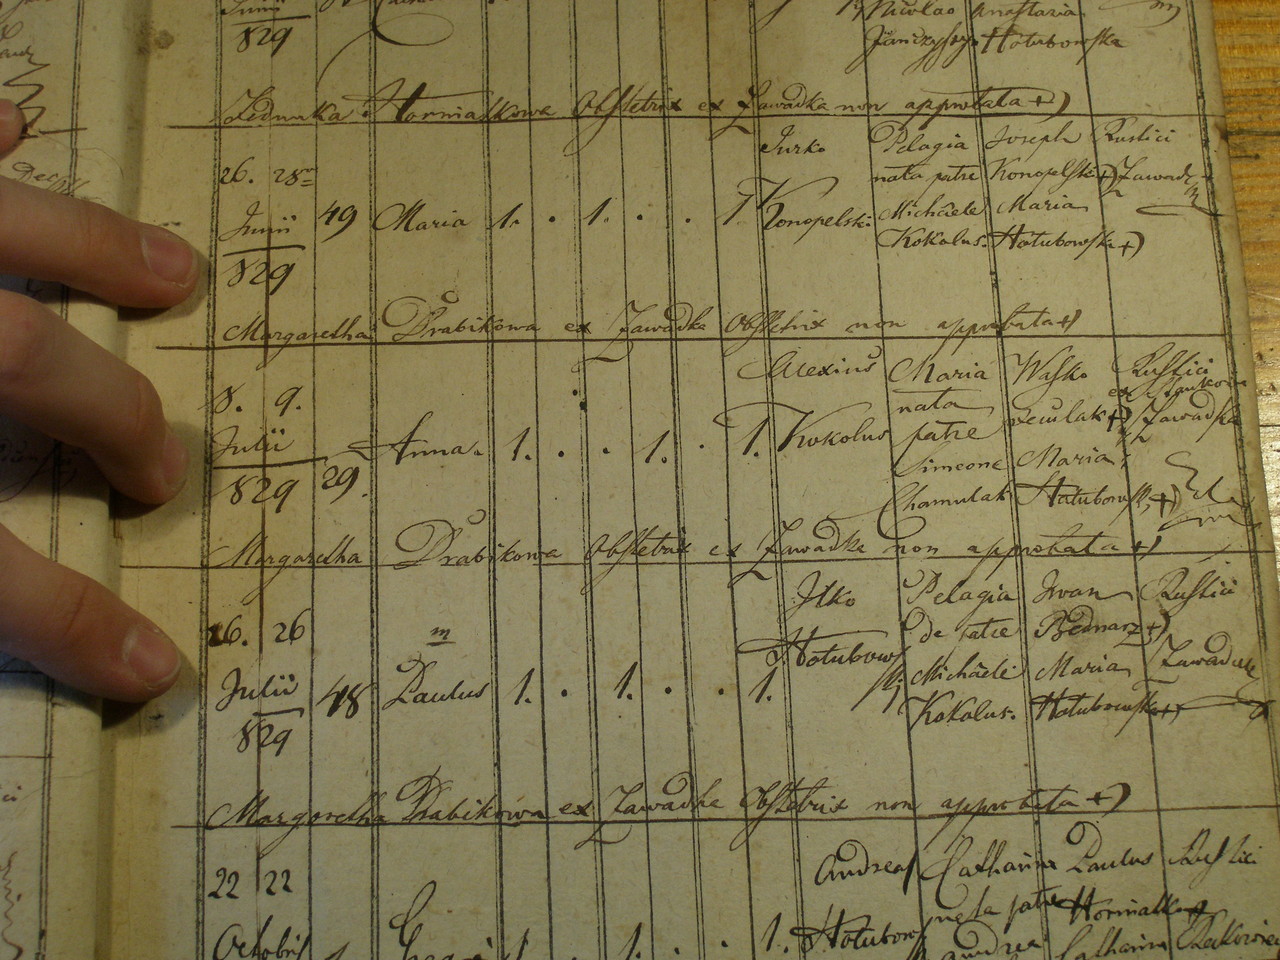 Junii
829
Nicolao Anastazia
Janczyszyn Hołubowska
Hormiatkowa Obstetrix ex Zawadka non approbata +)
Jurko Pelagia Joseph Rustici
26. 28
nata patre Konopelski +) Zawadc
Junii 49 Maria 1. . 1. . . 1. Konopelski Michaele Maria
Kokolus. Hołubowska +)
829
Margaretha Drabikowa ex Zawadka Obstetrix non approbata +)
Alexius Maria Wasko Rustici
8. 9. nata ex
Julii Anna. 1. . . 1. . 1. Kokolus patre +) Zawadka
Simeone Maria
829 29. Chamulak Hołubowsk, +)
Margaretha Drabikowa Obstetrix ex Zawadka non approbata +)
Itko Pelagia Iwan Rustici
26. 26 m de patre Bednarz +)
Hołubowski Michaele Maria Zawadcae
Julii 48 Paulus 1. . 1. . . 1.
Kokolus. Hołubowska +)
829
Margaretha Drabikowa ex Zawadka Obstetrix non approbata +)
Andreas Catharina Paulus Rustici
22 22
nata patre Hormiatko
Octobris 1. 1. . . 1. Hołubow Andrea Catharina